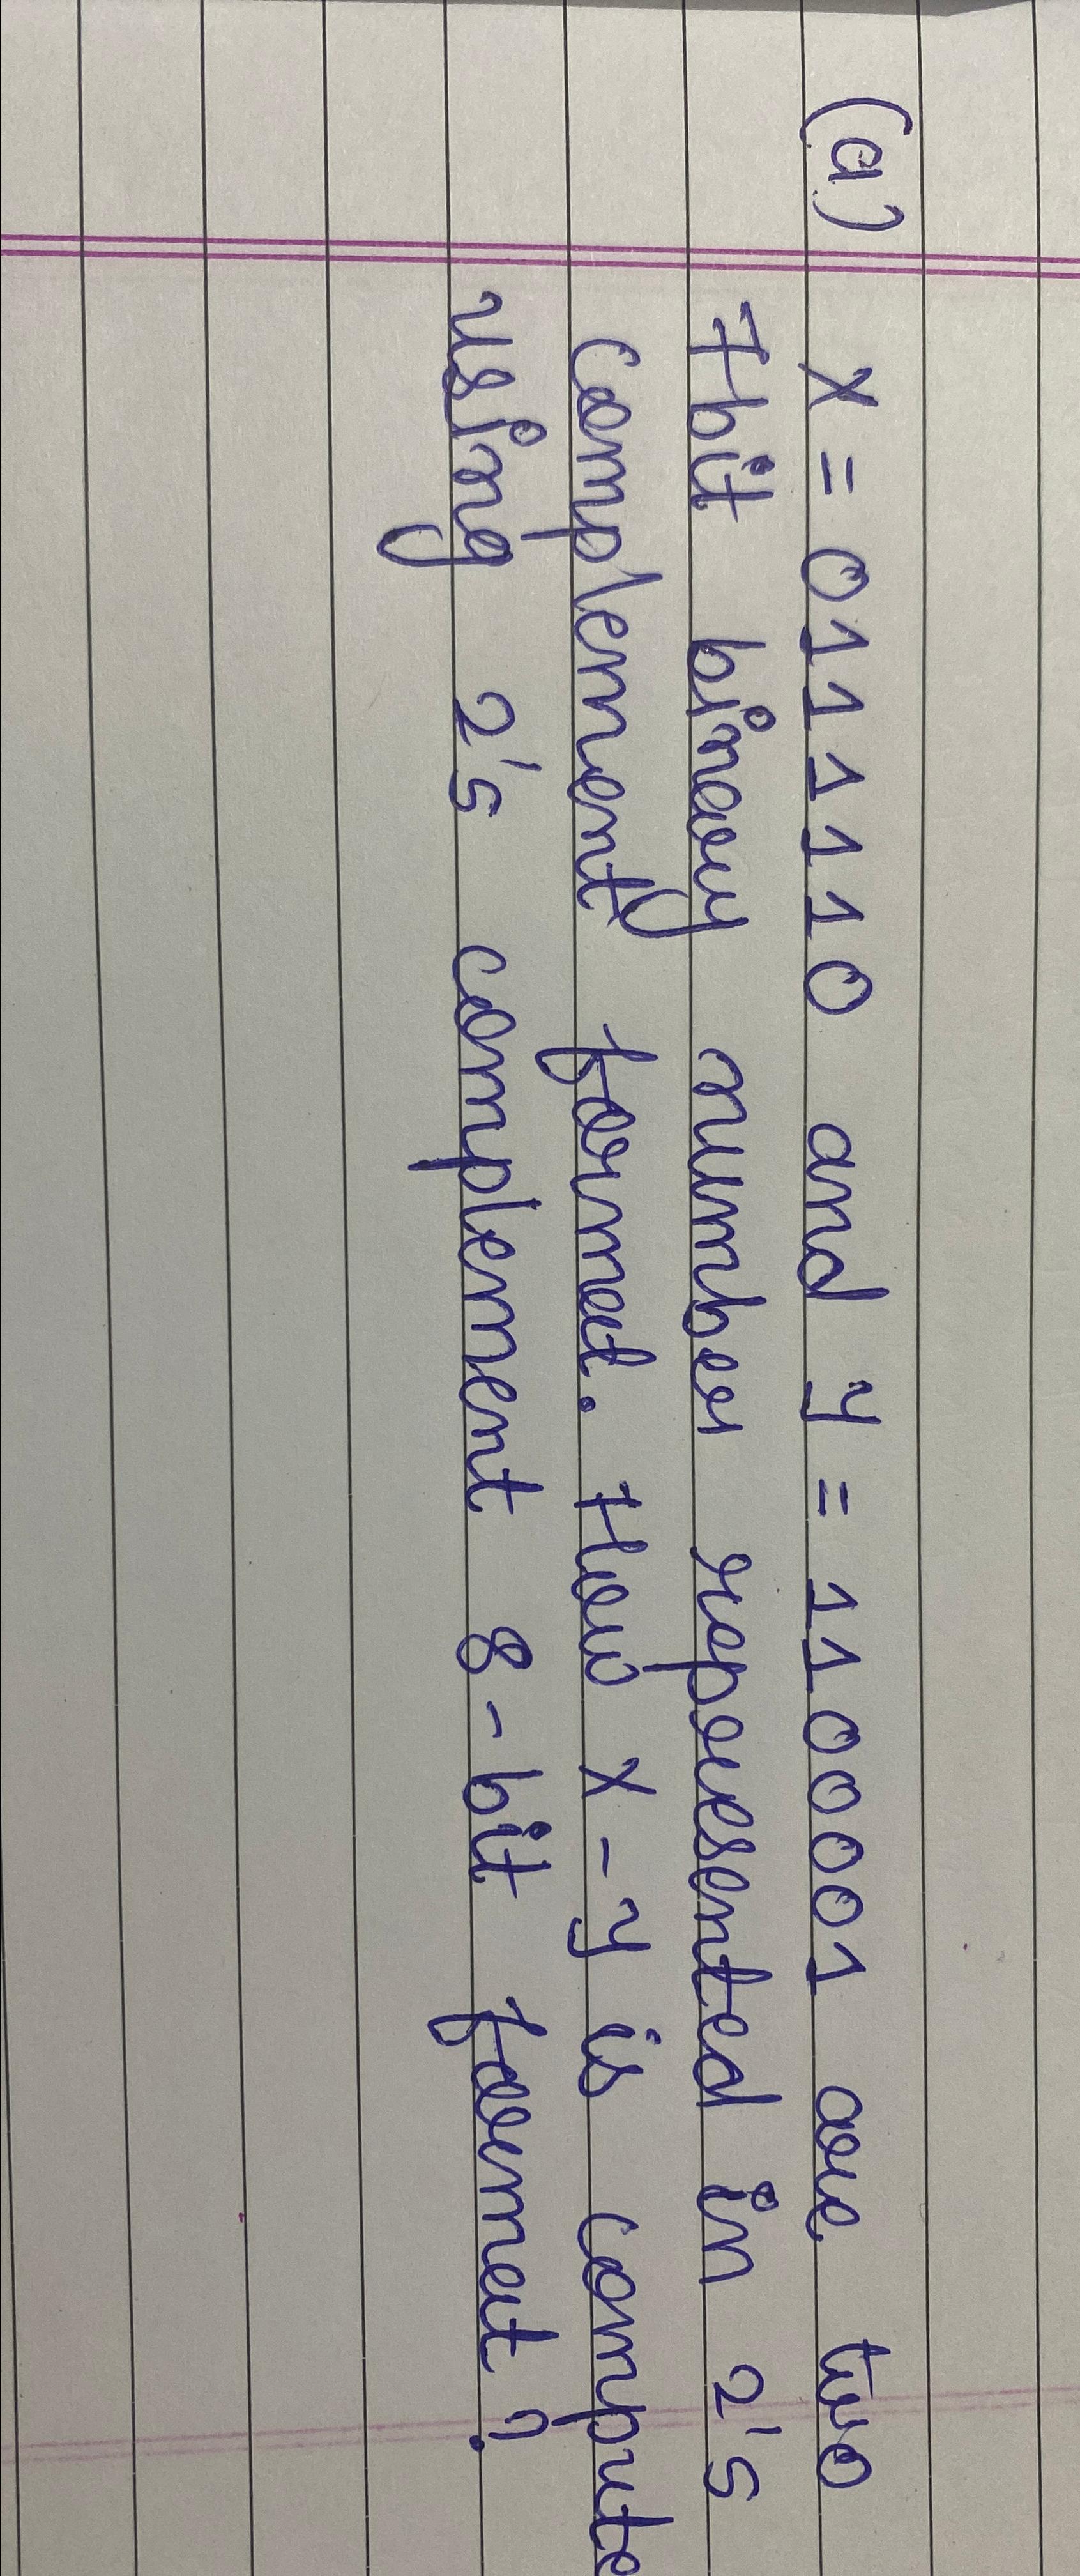 (a) X = 0111110 and y = 1100001 are two
7 bit binary number represented in 2's
complement format. How X - y is compute
using 2's complement 8-bit format?